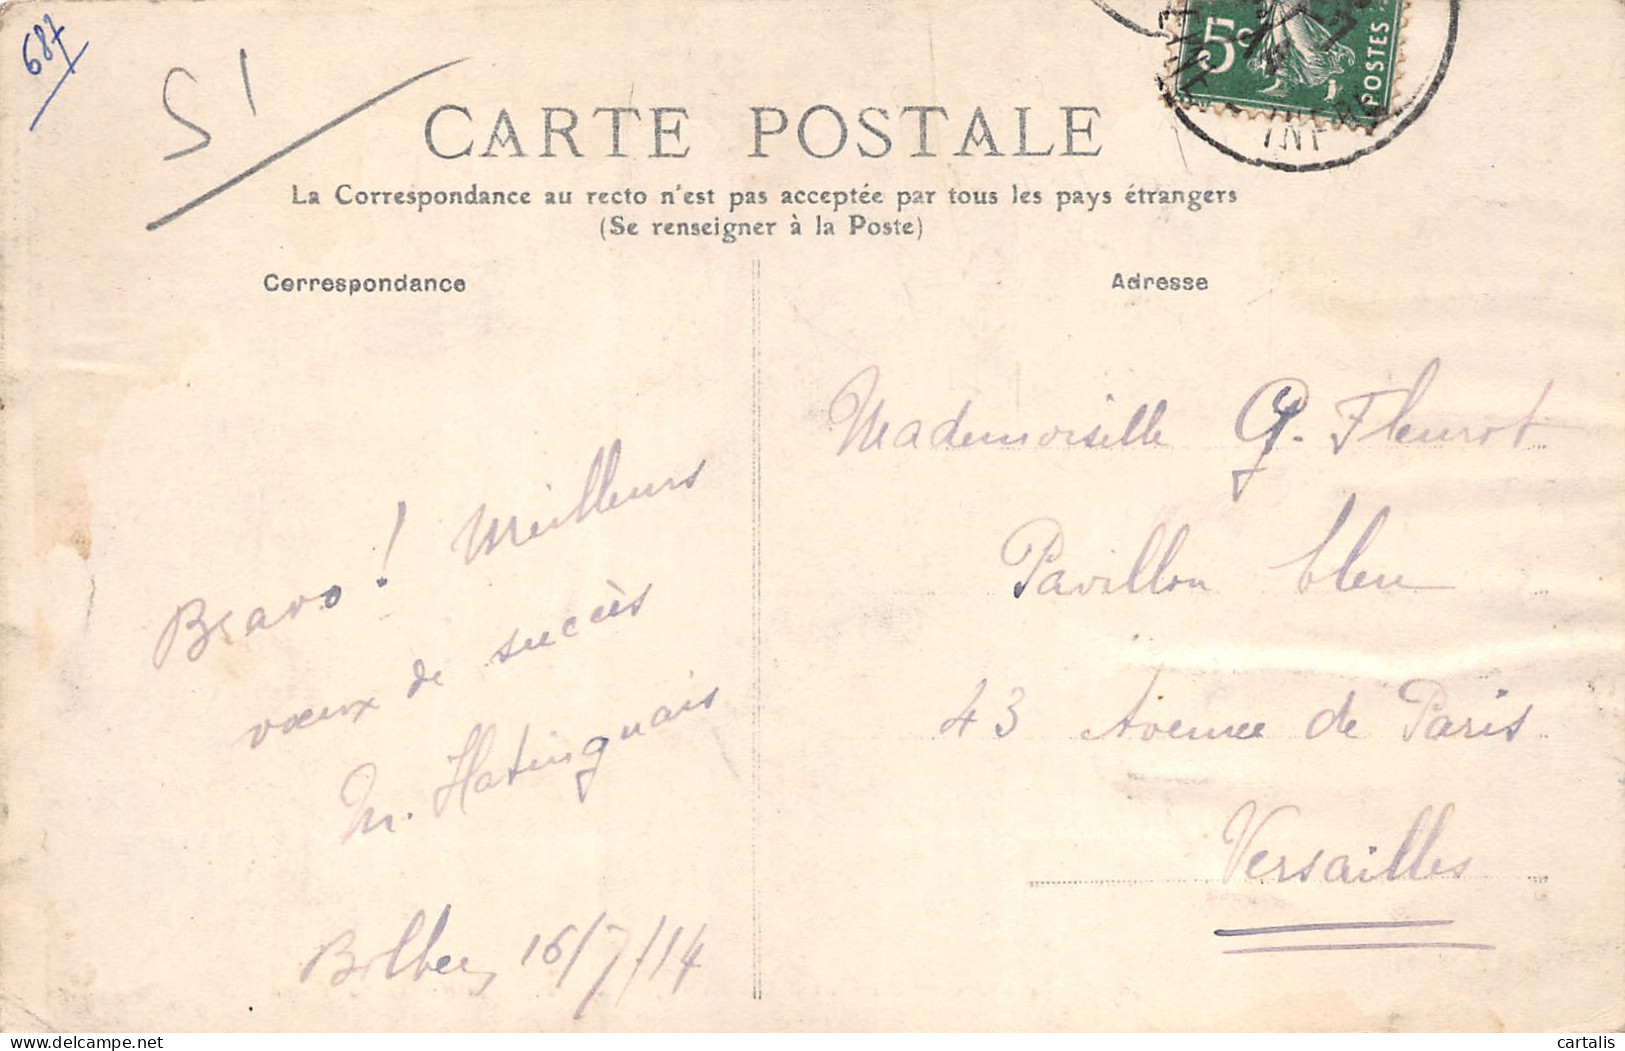 687
51
5c
POSTES
INFRE
CARTE POSTALE
La Correspondance au recto n'est pas acceptée par tous les pays étrangers
(Se renseigner à la Poste)
Correspondance
Bravo! Meilleurs
vœux de succès
M. Hatinguais
Bolbec, 16/7/14
Adresse
Mademoiselle G. Fleurot
Pavillon bleu
43 Avenue de Paris
Versailles
delcampe.net
cartalis